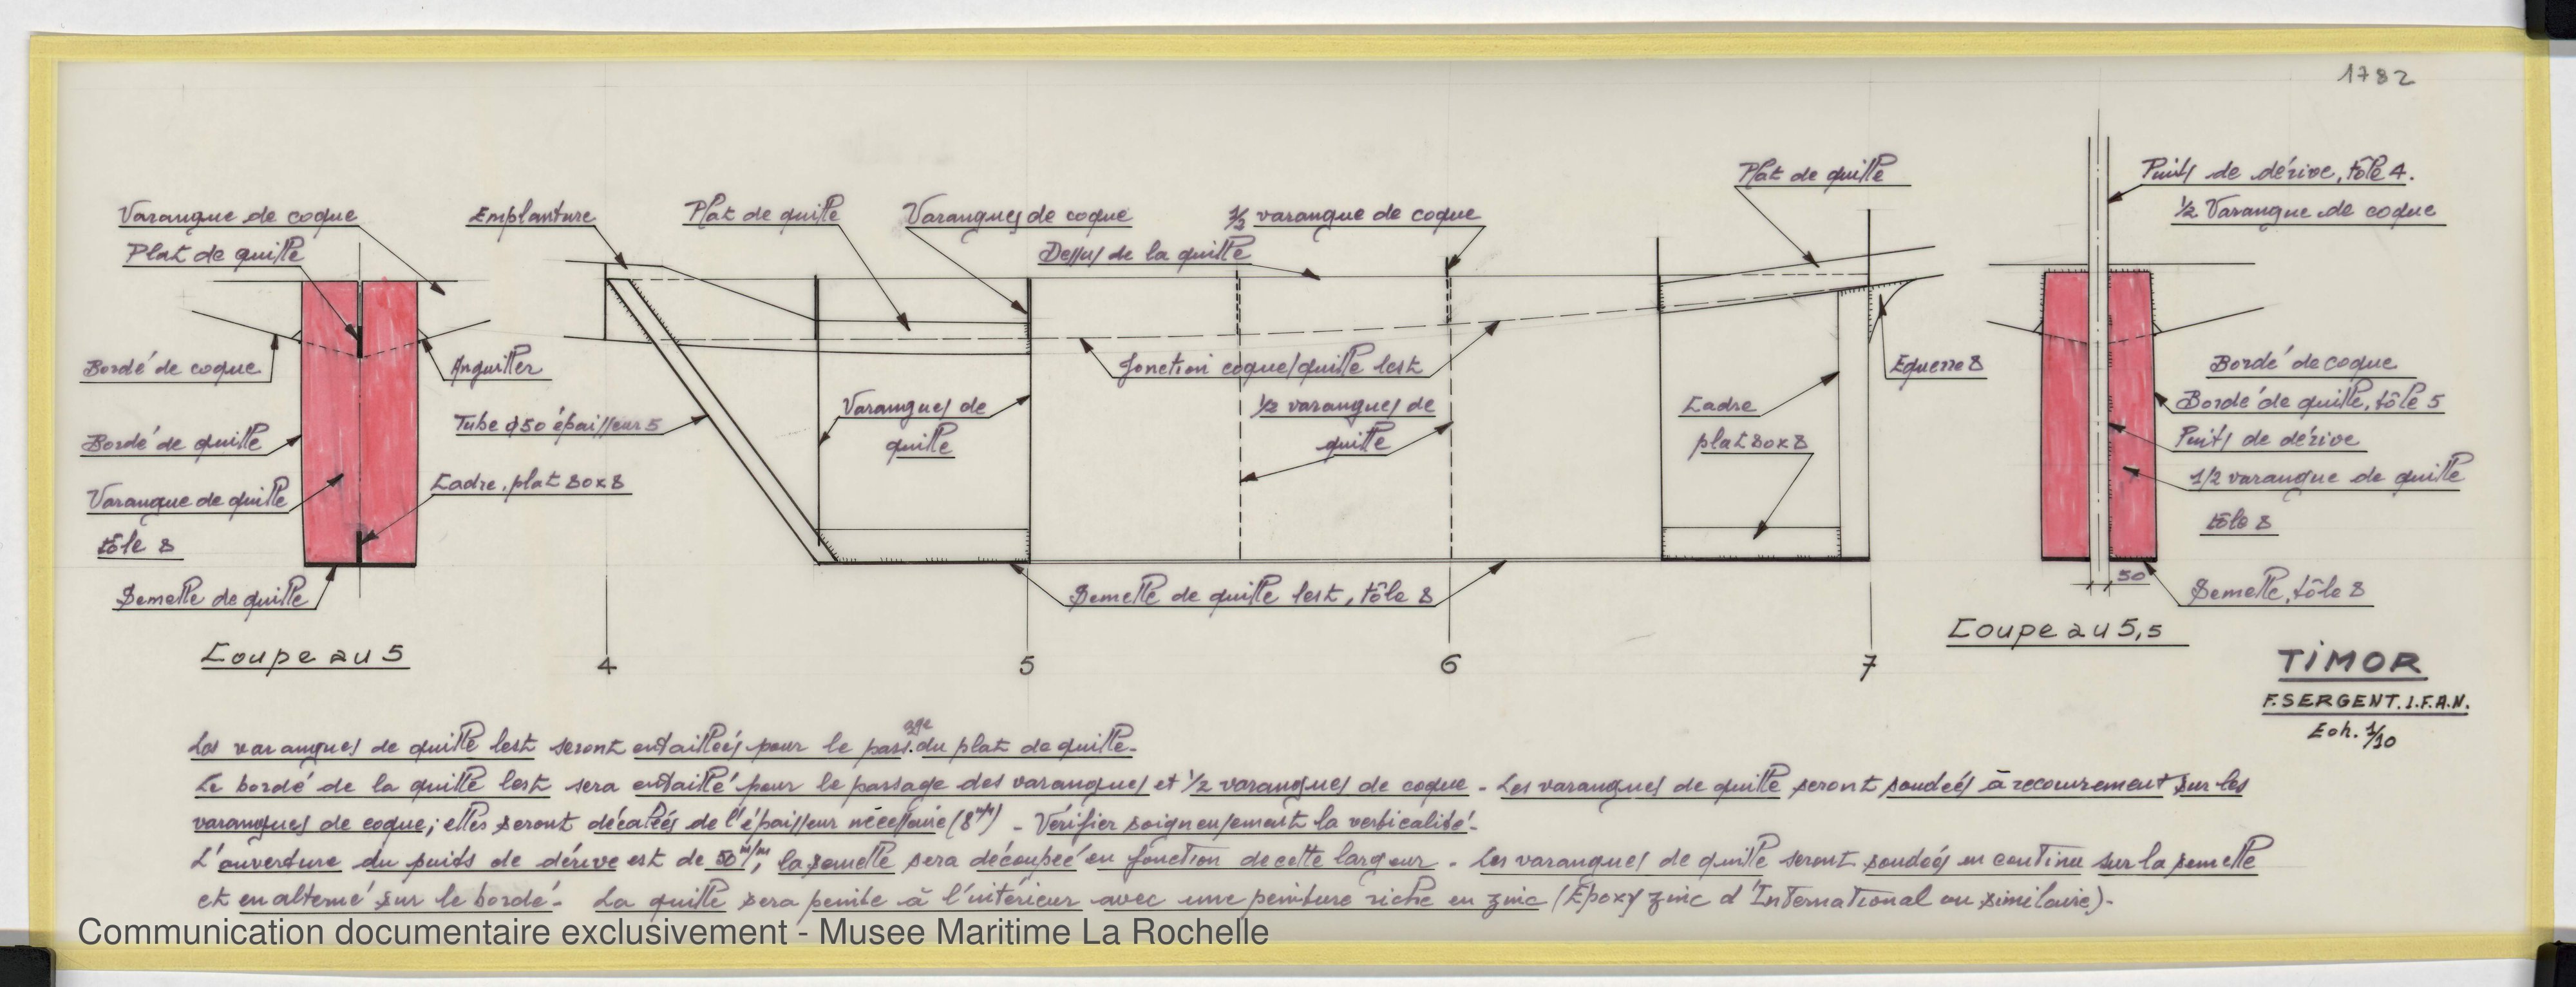 1782
Varangue de coque
Plat de quille
Bordé de coque
Anguiller
Bordé de quille
Varangue de quille
tôle 8
Cadre, plat 80x8
Semelle de quille
Coupe au 5
Emplanture
Plat de quille
Varangues de coque
1/2 varangue de coque
Dessus de la quille
Plat de quille
Tube φ50 épaisseur 5
Varangues de
quille
Jonction coque/quille lest
1/2 varangues de
quille
Cadre
plat 80x8
Equerre 8
Semelle de quille lest, tôle 8
4
5
6
7
Puits de dérive, tôle 4.
1/2 Varangue de coque
Bordé de coque
Bordé de quille, tôle 5
Puits de dérive
1/2 varangue de quille
tôle 8
50
Semelle, tôle 8
Coupe au 5,5
TIMOR
F. SERGENT. I.F.A.N.
Ech. 1/10
Les varangues de quille lest seront entaillées pour le passage du plat de quille.
Le bordé de la quille lest sera entaillé pour le passage des varangues et 1/2 varangues de coque - Les varangues de quille seront soudées à recouvrement sur les
varangues de coque; elles seront décalées de l'épaisseur nécessaire (8 m/m) - Vérifier soigneusement la verticalité -
L'ouverture du puits de dérive est de 50 m/m, la semelle sera découpée en fonction de cette largeur - Les varangues de quille seront soudées en continu sur la semelle
et en alterné sur le bordé - La quille sera peinte à l'intérieur avec une peinture riche en zinc (Epoxy zinc d'International ou similaire) -
Communication documentaire exclusivement - Musee Maritime La Rochelle